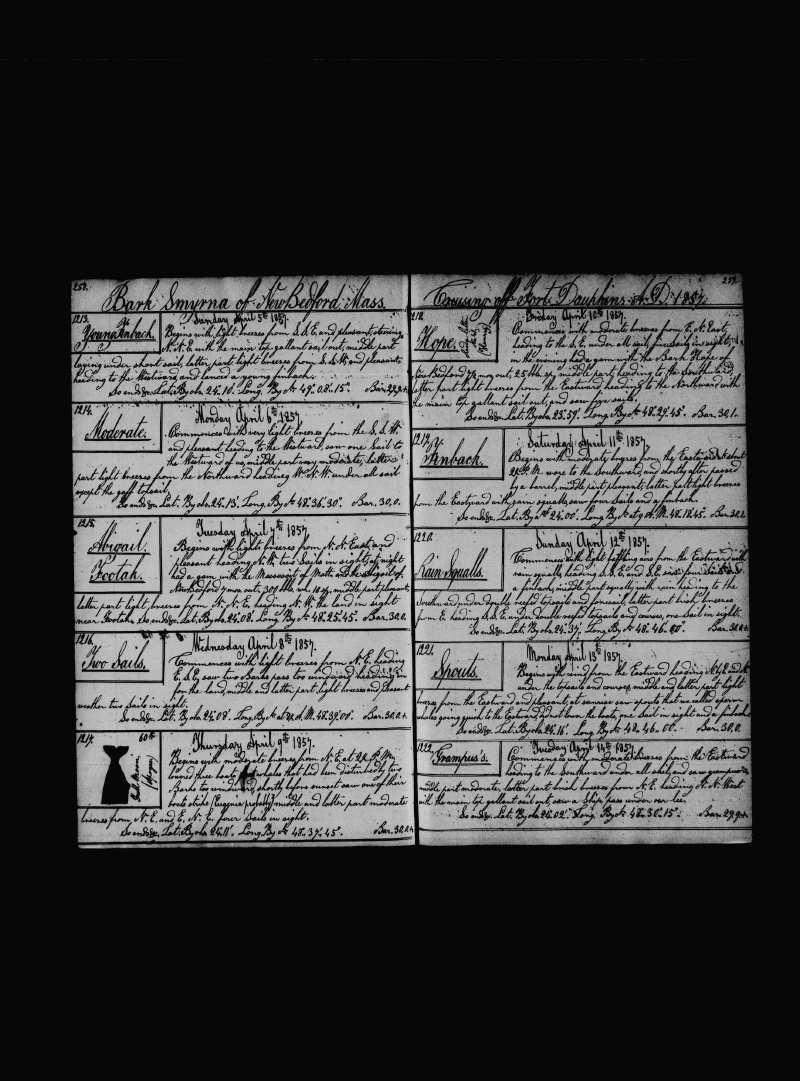 258.
Bark Smyrna of New Bedford Mass.
1213.
Young Finback.
Sunday April 5th 1857.
Begins with light breezes from S.S.E. and pleasant, steering
N.N.E. with the main top gallant sail out, middle part
laying under short sail, latter part light breezes from S.S.W. and pleasant
heading to the Westward, and lanced a young finback.
So ends &c. Lat. By obs. 24.10. Long. By Ch 49.08.15. Bar. 29.9+
1214.
Moderate.
Monday April 6th 1857
Commences with very light breezes from the S.S.W.
and pleasant heading to the Westward, saw one Sail to
the Westward of us, middle part very moderate, latter
part light breezes from the Northward heading W.N.W. under all sail
except the gaff topsail.
So ends &c. Lat. By obs. 24.13. Long. By Ch 48.36.30. Bar. 30.0.
1215.
Abigail.
Footah.
Tuesday April 7th 1857
Begins with light breezes from N.N. East, and
pleasant heading N.W. two Sails in sight, at night
had a gam with the Massasoit of Matt. and the Abigail of
New Bedford 7 mos. out, 300 bbls. wh. 10 sp., middle part pleasant,
latter part light, breezes from N.N.E. heading N.W. the land in sight
near Footah. So ends &c. Lat. By obs. 24.08. Long. By Ch 48.25.45. Bar. 30.0.
1216.
Two Sails.
Wednesday April 8th 1857.
Commences with light breezes from N.E. heading
E.S.E. saw two Barks pass too windward heading in
for the land, middle and latter part light breezes and pleasant
weather two sails in sight.
So ends &c. Lat. By obs. 24.08. Long. By Ch at A.M. 48.39.00. Bar. 30.0.+
1217.
60th
Thursday April 9th 1857.
Begins with moderate breezes from N.E. at 2 P.M.
lowered three boats for whales that had been disturbed by two
Barks too windward, shortly before sunset saw one of their
boats strike (Eugenia probably) middle and latter part moderate
breezes from N.E. and E.N.E. four Sails in sight.
So ends &c. Lat. By obs. 24.11. Long. By Ch 48.37.45. Bar. 30.0.+
259.
Cruising off Fort Dauphin. A.D. 1857.
1218.
Hope.
Friday April 10th 1857.
Commences with moderate breezes from E.N. East,
heading to the S.E. under all sail, five Sails in sight,
in the evening had a gam with the Bark Hope of
New Bedford out, middle part heading to the Southward,
latter part light breezes from the Eastward heading to the Northward with
the main top gallant sail out, and saw five sails.
So ends &c. Lat. By obs. 23.59. Long. By Ch 48.29.45. Bar. 30.1.
1219.
Finback.
Saturday April 11th 1857.
Begins with moderate breezes from the Eastward, at about
2 P.M. wore to the Southward, and shortly after passed
by a barrel, middle part pleasant, latter part light breezes
from the Eastward with rain squalls, saw four Sails and a finback.
So ends &c. Lat. By Ch 24.00. Long. By Ch at 9 A.M. 48.18.45. Bar. 30.1.
1220.
Rain Squalls.
Sunday April 12th 1857.
Commences with light baffling airs from the Eastward with
rain squalls, heading S.S.E. and S.E. saw four Sails and
a finback, middle part squally with rain heading to the
Southward under double reefed topsails and foresail, latter part brisk breezes
from E. heading S.S.E. under double reefed topsails and courses, one sail in sight.
So ends &c. Lat. By obs. 24.37. Long. By Ch 48.46.00. Bar. 30.0.+
1221.
Spouts.
Monday April 13th 1857
Begins with wind from the Eastward heading
under the topsails and courses, middle and latter part light
breezes from the Eastward and pleasant, at sunrise saw spouts that we called sperm
whales going quick to the Eastward did not lower the boats, one Sail in sight and a finback.
So ends &c. Lat. By obs. 24.16. Long. By Ch 48.46.00. Bar. 30.0.
1222.
Grampus's.
Tuesday April 14th 1857.
Commences with moderate breezes from the Eastward
heading to the Southward under all sail, and saw grampus's
middle part moderate, latter part brisk breezes from N.E. heading N.N. West
with the main top gallant sail out, saw a Ship pass under our lee.
So ends &c. Lat. By obs. 24.02. Long. By Ch 48.30.15. Bar. 29.9+